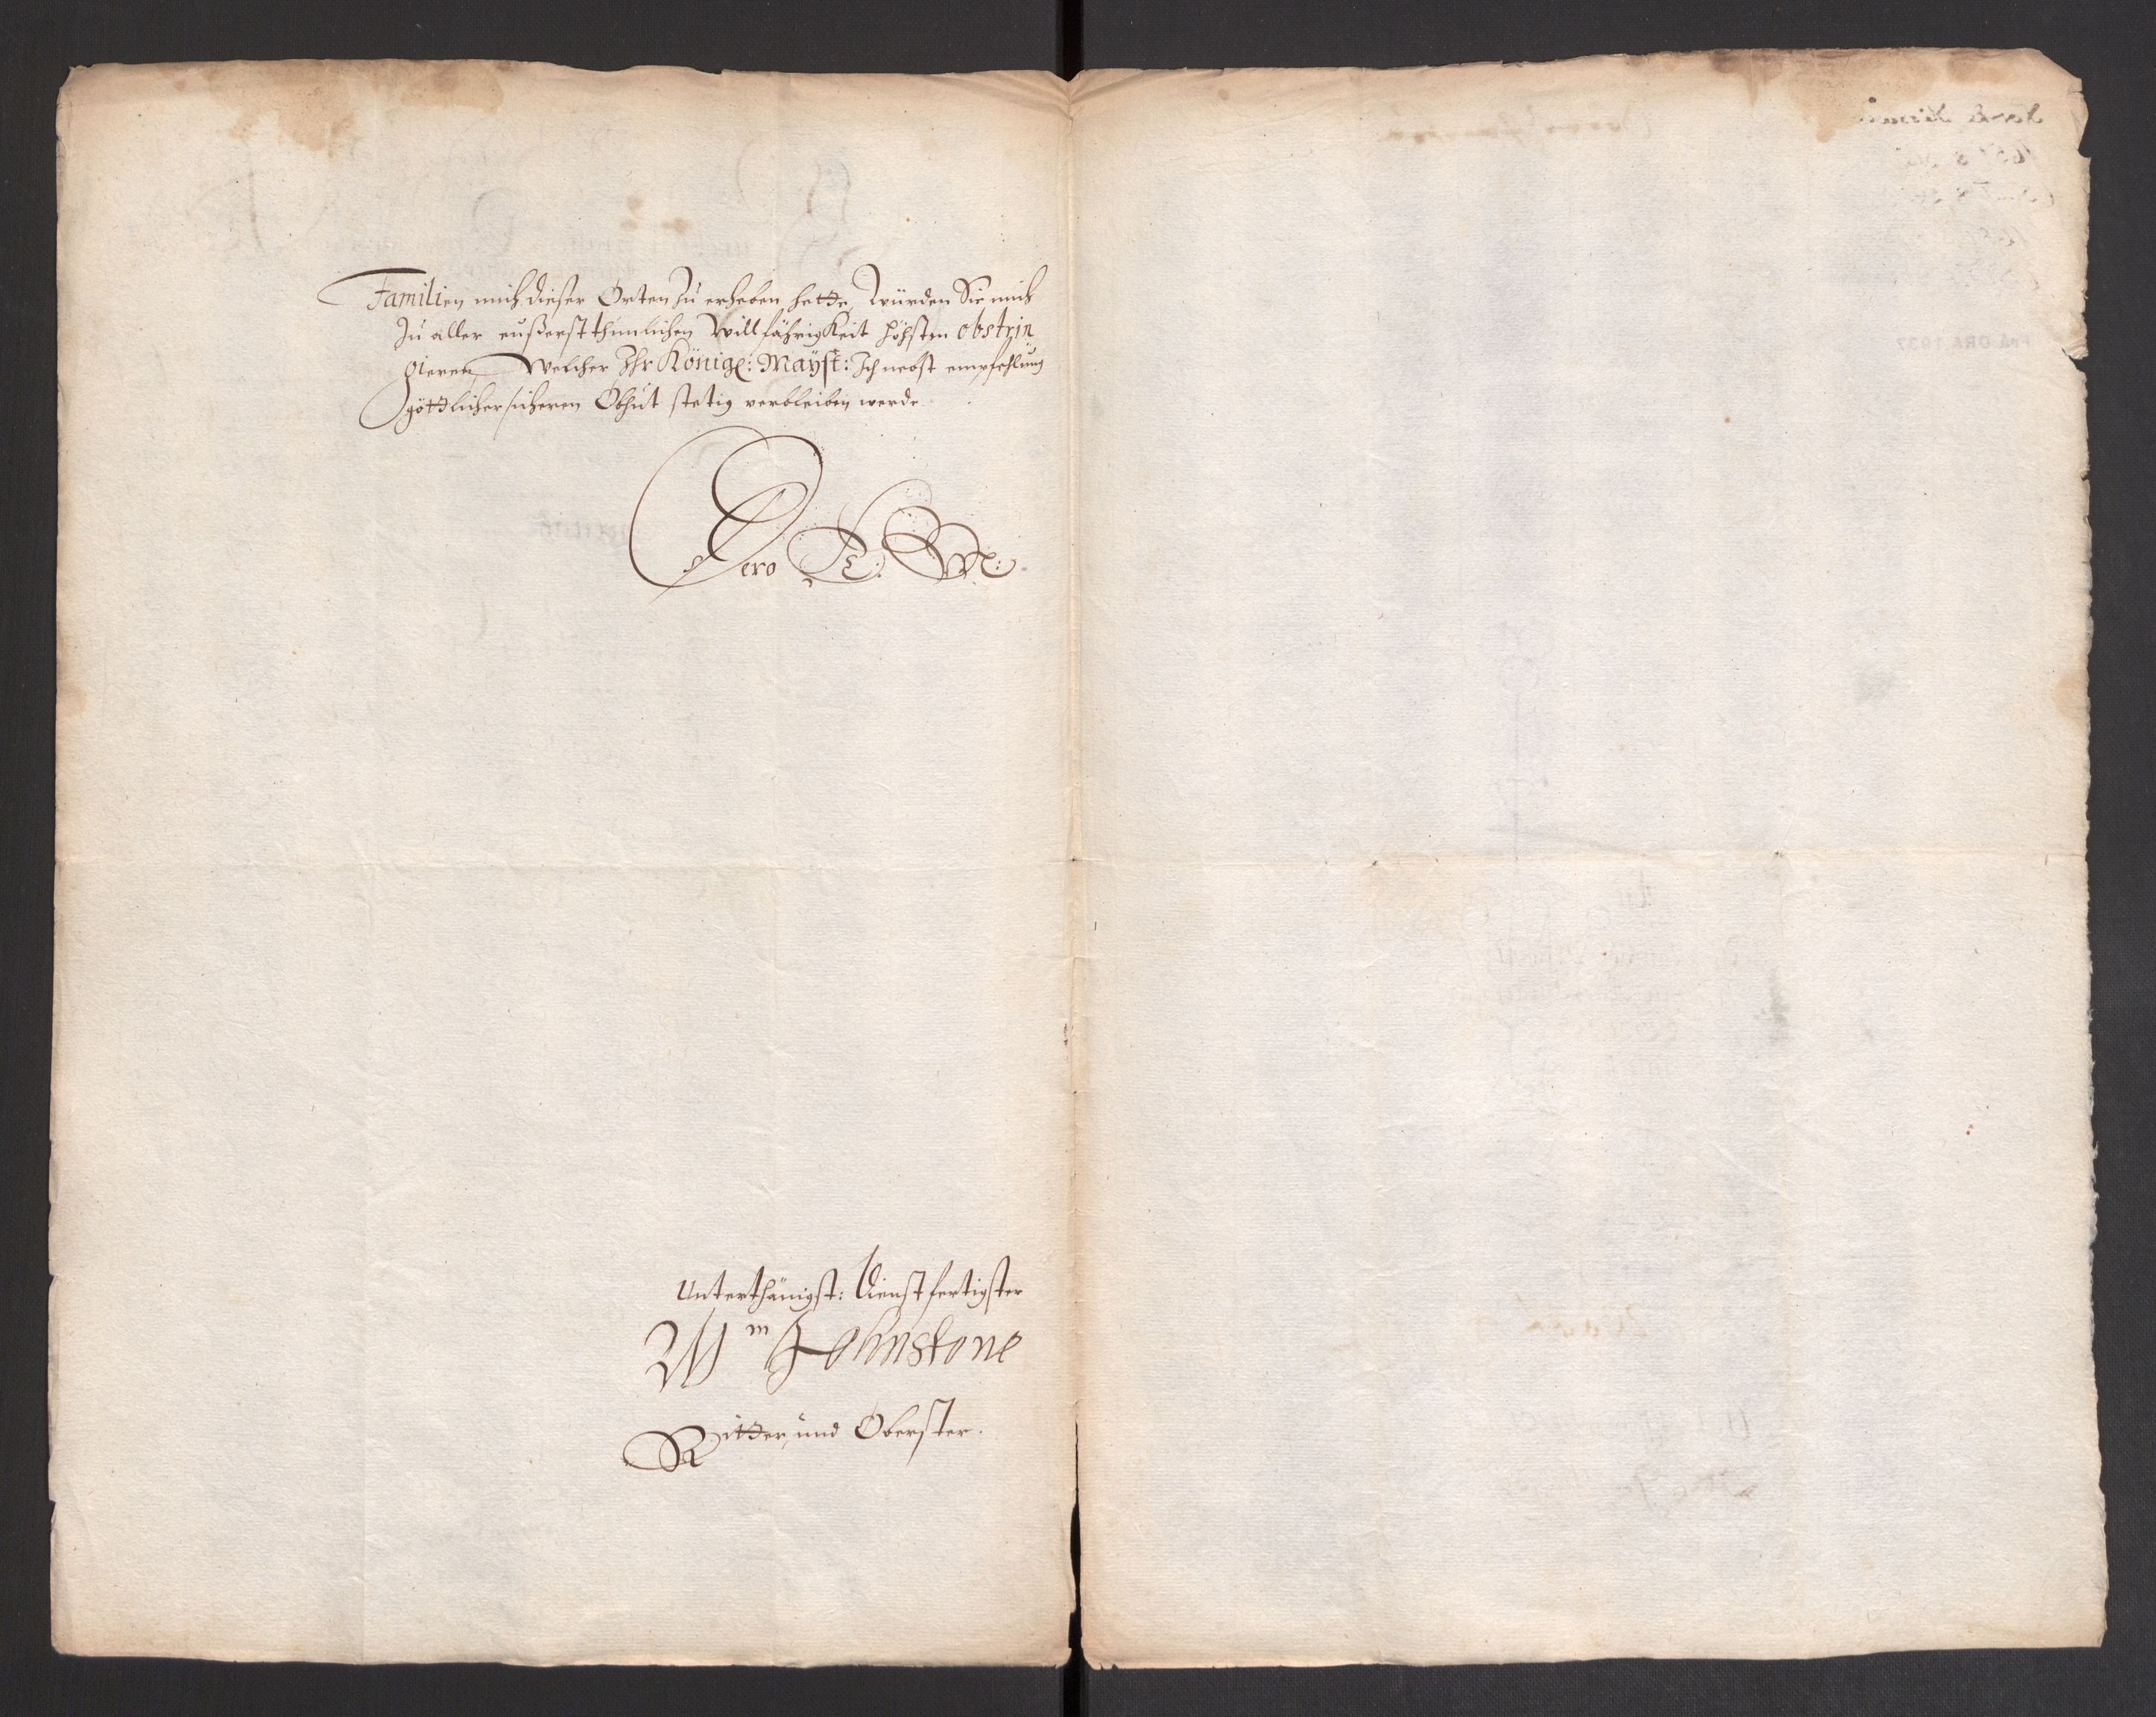 Familien mich dieser Orten zu erheben hette, würden Sie mich
zu aller eußerst thunlichen Willfährigkeit höchsten obstrin
gieren, Welcher Ihr Königl: Mayst: Ich nebst empfehlung
göttlicher sicheren Obhut stetig verbleiben werde
Dero K: M:
Unterthänigst: dienstfertigster
Wm Johnstone
Ritter und Oberster.